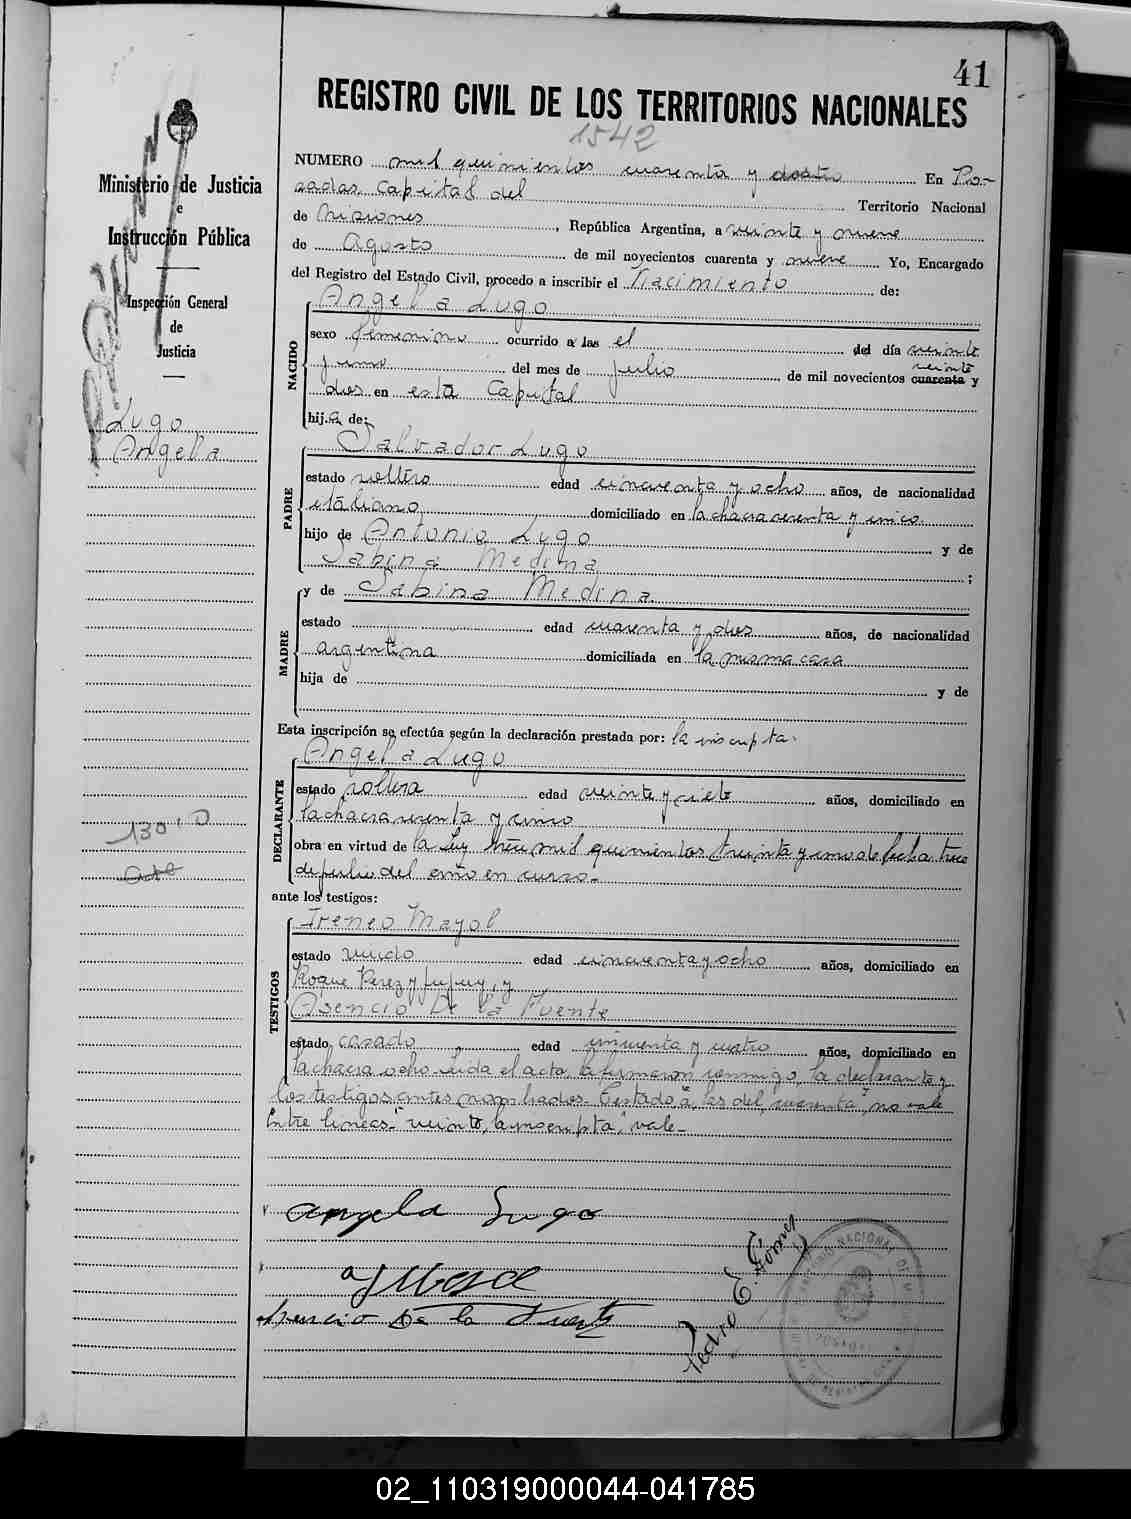 41
REGISTRO CIVIL DE LOS TERRITORIOS NACIONALES
1542
Ministerio de Justicia
e
Instrucción Pública
Inspección General
de
Justicia
Lugo
Angela
130
NUMERO mil quinientos cuarenta y dos En Po-
sadas Capital del Territorio Nacional
de Misiones, República Argentina, a veinte y nueve
de Agosto de mil novecientos cuarenta y nueve Yo, Encargado
del Registro del Estado Civil, procedo a inscribir el Nacimiento de:
NACIDO
Angela Lugo
sexo femenino ocurrido a las el del día veinte
y uno del mes de julio de mil novecientos cuarenta veinte y
dos en esta Capital
hija de:
PADRE
Salvador Lugo
estado soltero edad cincuenta y ocho años, de nacionalidad
italiano domiciliado en la chacra sesenta y cinco
hijo de Antonio Lugo y de
Sabina Medina ;
MADRE
y de Sabina Medina
estado edad cuarenta y dos años, de nacionalidad
argentina domiciliada en la misma casa
hija de y de
Esta inscripción se efectúa según la declaración prestada por: la inscripta.
DECLARANTE
Angela Lugo
estado soltera edad veinte y siete años, domiciliado en
la chacra sesenta y cinco
obra en virtud de la ley trece mil quinientos treinta y uno de fecha trece
de julio del año en curso.-
ante los testigos:
TESTIGOS
Ireneo Mayol
estado viudo edad cincuenta y ocho años, domiciliado en
Roque Perez y Jujuy, y
Asencio De la Fuente
estado casado edad cincuenta y cuatro años, domiciliado en
la chacra ocho. Leida el acta, la firmaron conmigo, la declarante y
los testigos antes nombrados. Testado "a las del, cuarenta", no vale
Entre lineas "veinte, la inscripta", vale.-
Angela Lugo
Asencio De la Fuente
Pedro E. Gómez
02_110319000044-041785